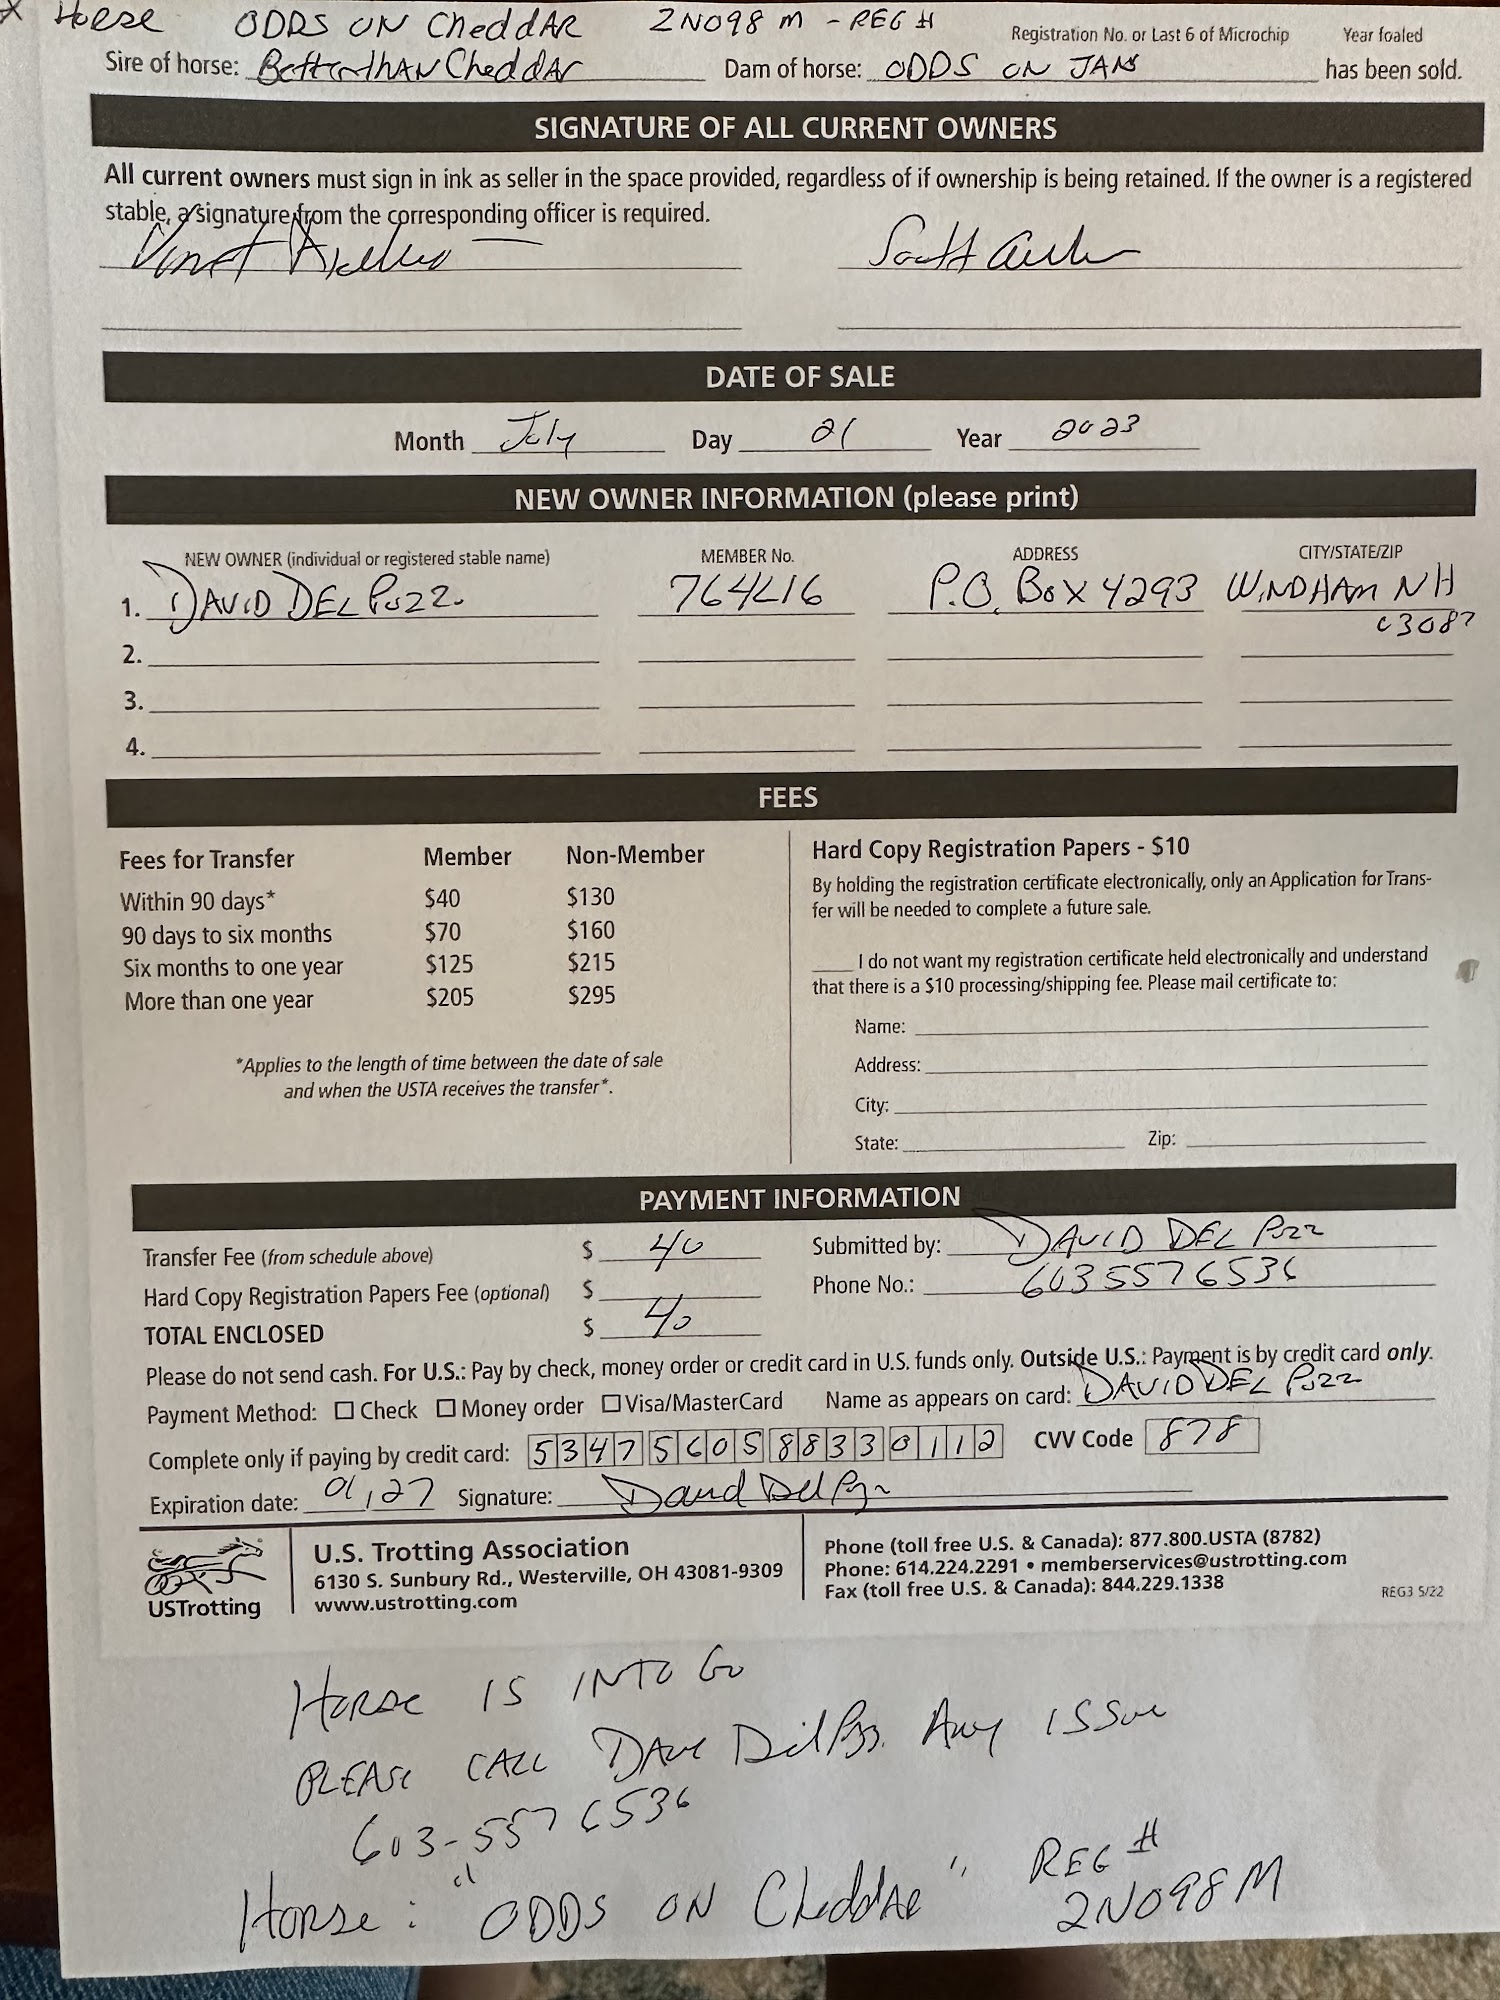 x Horse ODDS ON CheddAR 2N098 M - REG #
Registration No. or Last 6 of Microchip Year foaled
Sire of horse: BetterthAN CheddAr Dam of horse: ODDS ON JANS has been sold.
SIGNATURE OF ALL CURRENT OWNERS
All current owners must sign in ink as seller in the space provided, regardless of if ownership is being retained. If the owner is a registered
stable, a signature from the corresponding officer is required.
DATE OF SALE
Month July Day 21 Year 2023
NEW OWNER INFORMATION (please print)
NEW OWNER (individual or registered stable name) MEMBER No. ADDRESS CITY/STATE/ZIP
1. DAVID DEL Pozzo 764L16 P.O. Box 4293 WINDHAM NH
03087
2.
3.
4.
FEES
Fees for Transfer Member Non-Member
Within 90 days* $40 $130
90 days to six months $70 $160
Six months to one year $125 $215
More than one year $205 $295
*Applies to the length of time between the date of sale
and when the USTA receives the transfer*.
Hard Copy Registration Papers - $10
By holding the registration certificate electronically, only an Application for Trans-
fer will be needed to complete a future sale.
I do not want my registration certificate held electronically and understand
that there is a $10 processing/shipping fee. Please mail certificate to:
Name:
Address:
City:
State: Zip:
PAYMENT INFORMATION
Transfer Fee (from schedule above) $ 40 Submitted by: DAVID DEL Pozz
Hard Copy Registration Papers Fee (optional) $ Phone No.: 6035576536
TOTAL ENCLOSED $ 40
Please do not send cash. For U.S.: Pay by check, money order or credit card in U.S. funds only. Outside U.S.: Payment is by credit card only.
Payment Method: ☐ Check ☐ Money order ☐ Visa/MasterCard Name as appears on card: DAVID DEL Pozz
Complete only if paying by credit card: 5347560588330112 CVV Code 878
Expiration date: 01,27 Signature: David Del Pozz
USTrotting
U.S. Trotting Association
6130 S. Sunbury Rd., Westerville, OH 43081-9309
www.ustrotting.com
Phone (toll free U.S. & Canada): 877.800.USTA (8782)
Phone: 614.224.2291 • memberservices@ustrotting.com
Fax (toll free U.S. & Canada): 844.229.1338
REG3 5/22
Horse IS INTO GO
PLEASE CALL DAVE DelPozz. Any ISSUE
603-557 6536
Horse: "ODDS ON CheddAR" REG #
2N098M